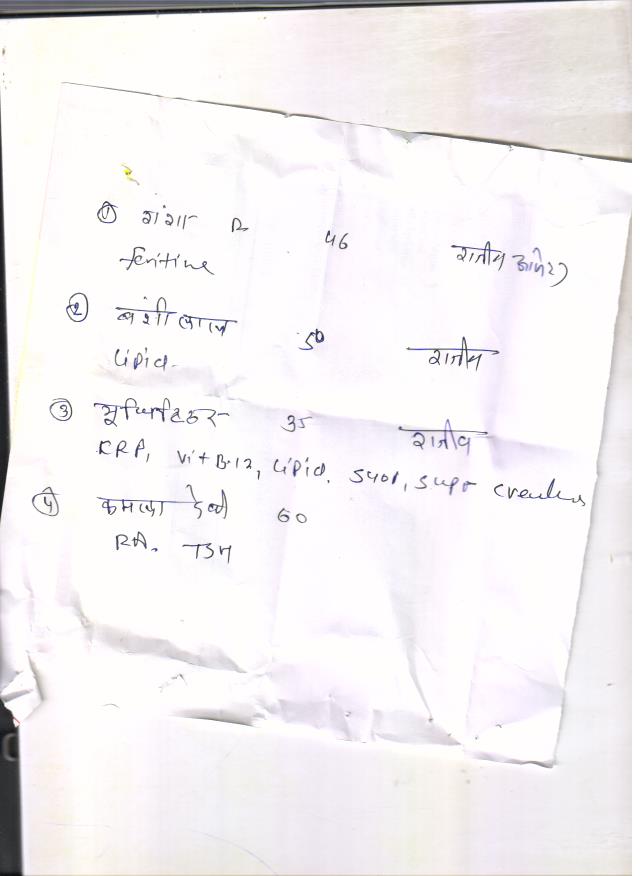 ① गंगा 46 राजीव
② बंशी लाल 50 राजीव
Lipid.
③ 35 राजीव
CRP, Vit B12, Lipid, SGOT, SGPT
④ कमला देवी 60
RA. TSH